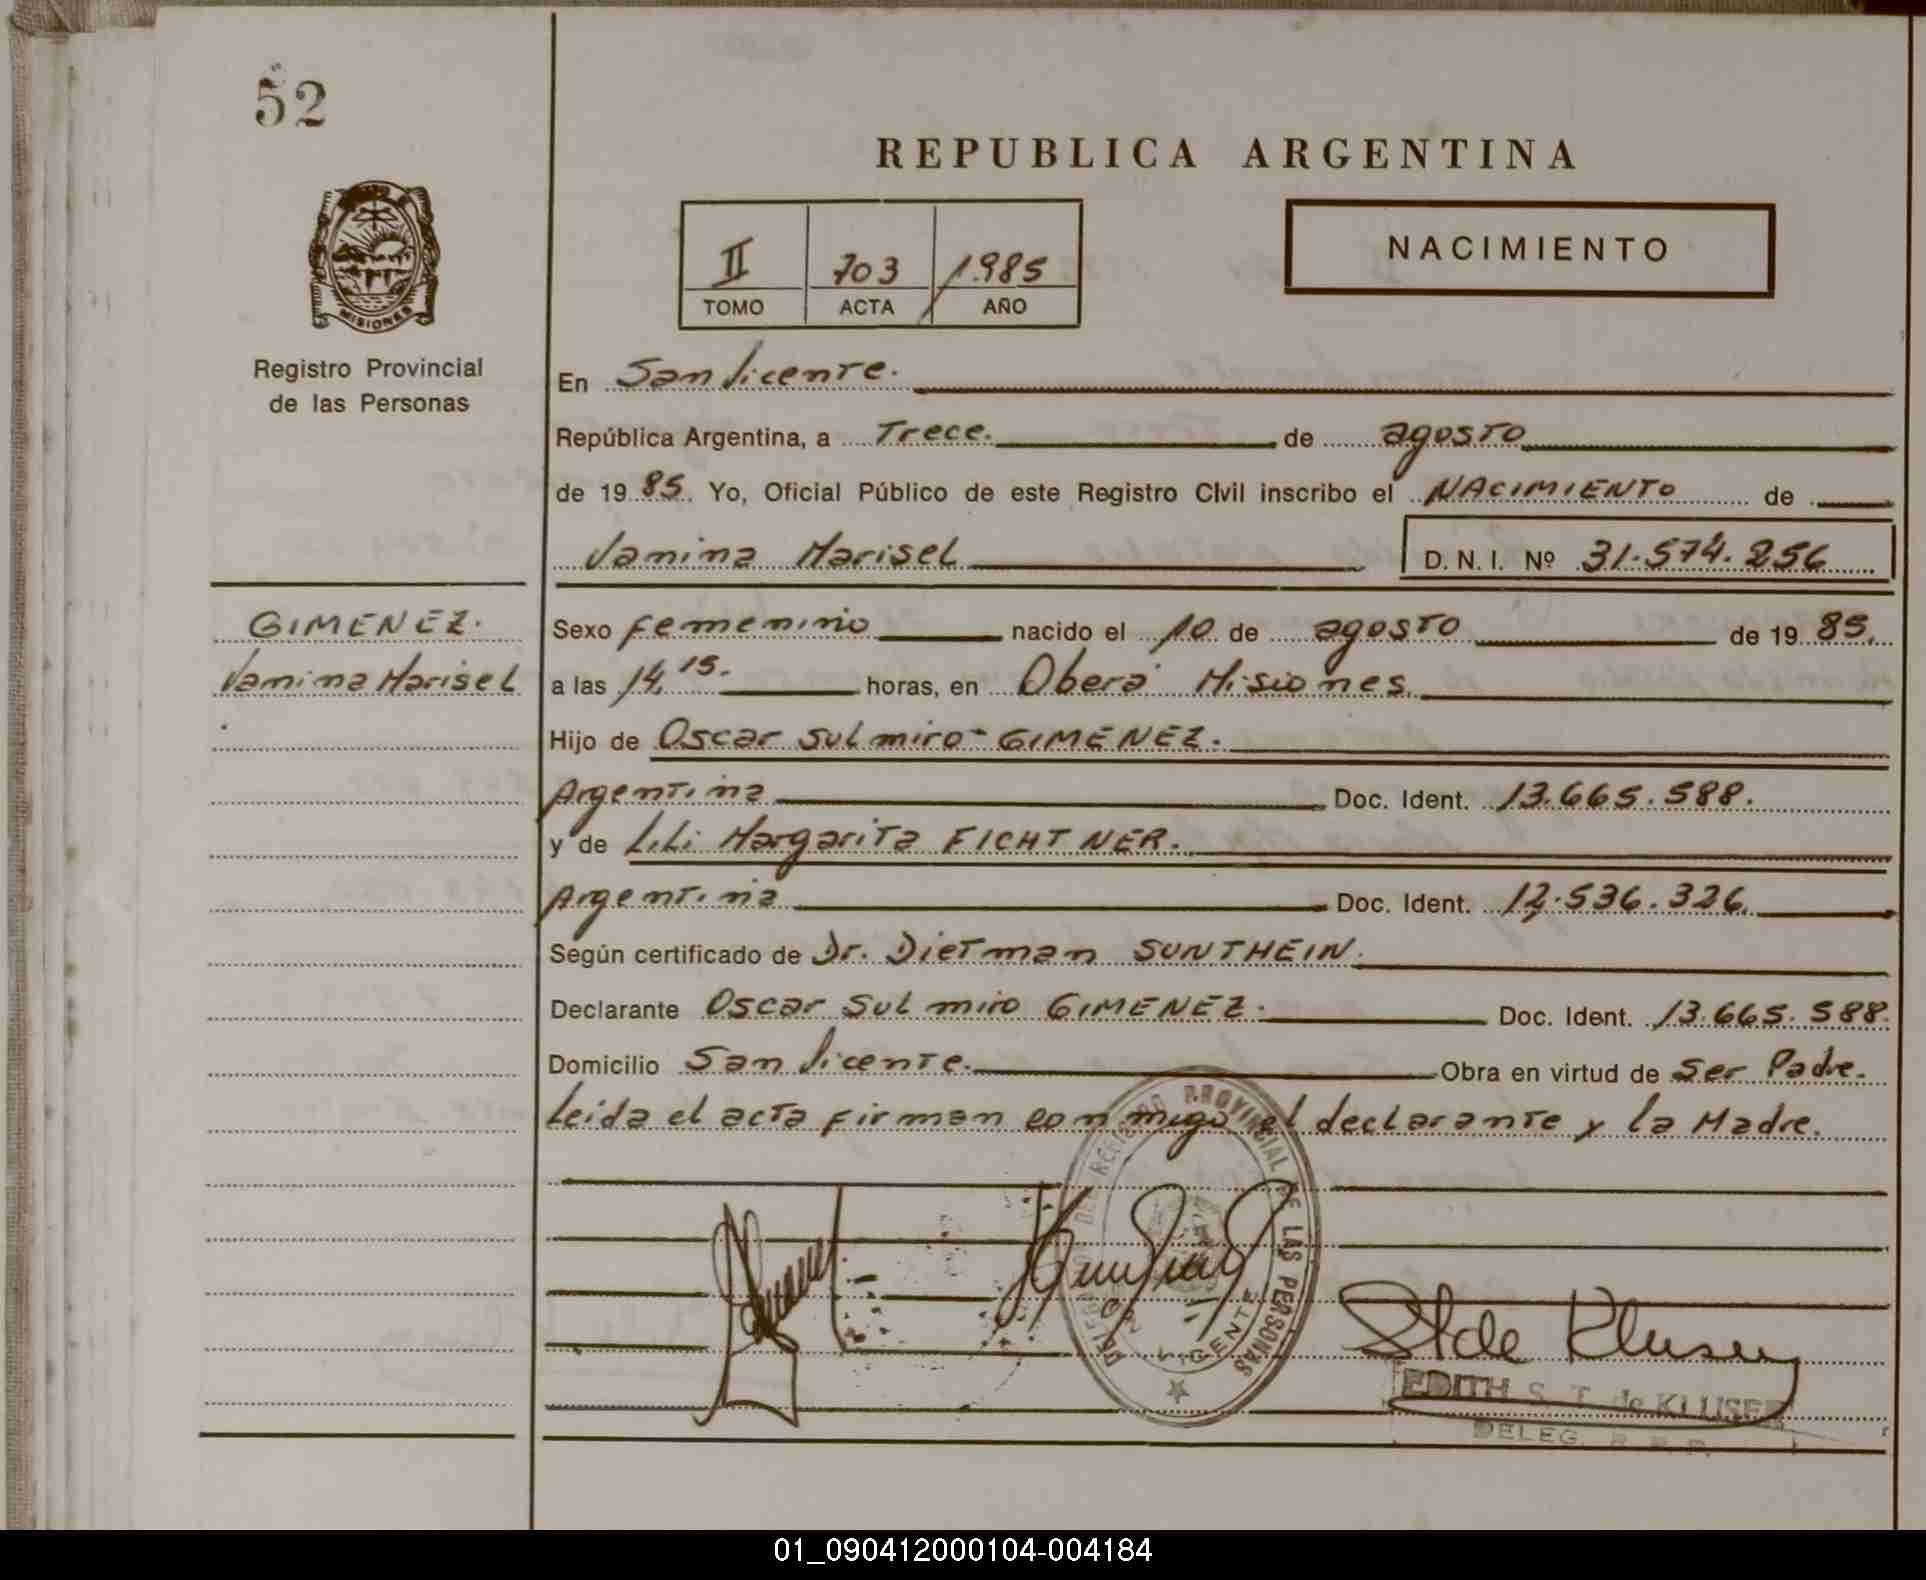 52
REPUBLICA ARGENTINA
II 703 1985
TOMO ACTA AÑO
NACIMIENTO
MISIONES
Registro Provincial
de las Personas
En San Vicente.
República Argentina, a Trece. de agosto
de 19 85. Yo, Oficial Público de este Registro Civil inscribo el NACIMIENTO de
Vanina Marisel D. N. I. Nº 31.574.256
GIMENEZ.
Vanina Marisel
Sexo femenino nacido el 10 de agosto de 19 85.
a las 14,15. horas, en Oberá Misiones
Hijo de Oscar Sulmiro- GIMENEZ.
Argentina Doc. Ident. 13.665.588.
y de Lili Margarita FICHTNER.
Argentina Doc. Ident. 12.536.326
Según certificado de Dr. Dietman SUNTHEIN.
Declarante Oscar Sulmiro GIMENEZ. Doc. Ident. 13.665.588
Domicilio San Vicente. Obra en virtud de Ser Padre.
Leida el acta firman conmigo el declarante y la Madre.
REGISTRO PROVINCIAL DE LAS PERSONAS
VICENTE
EDITH S. T. de KLUSER
DELEG. R. P. P.
01_090412000104-004184